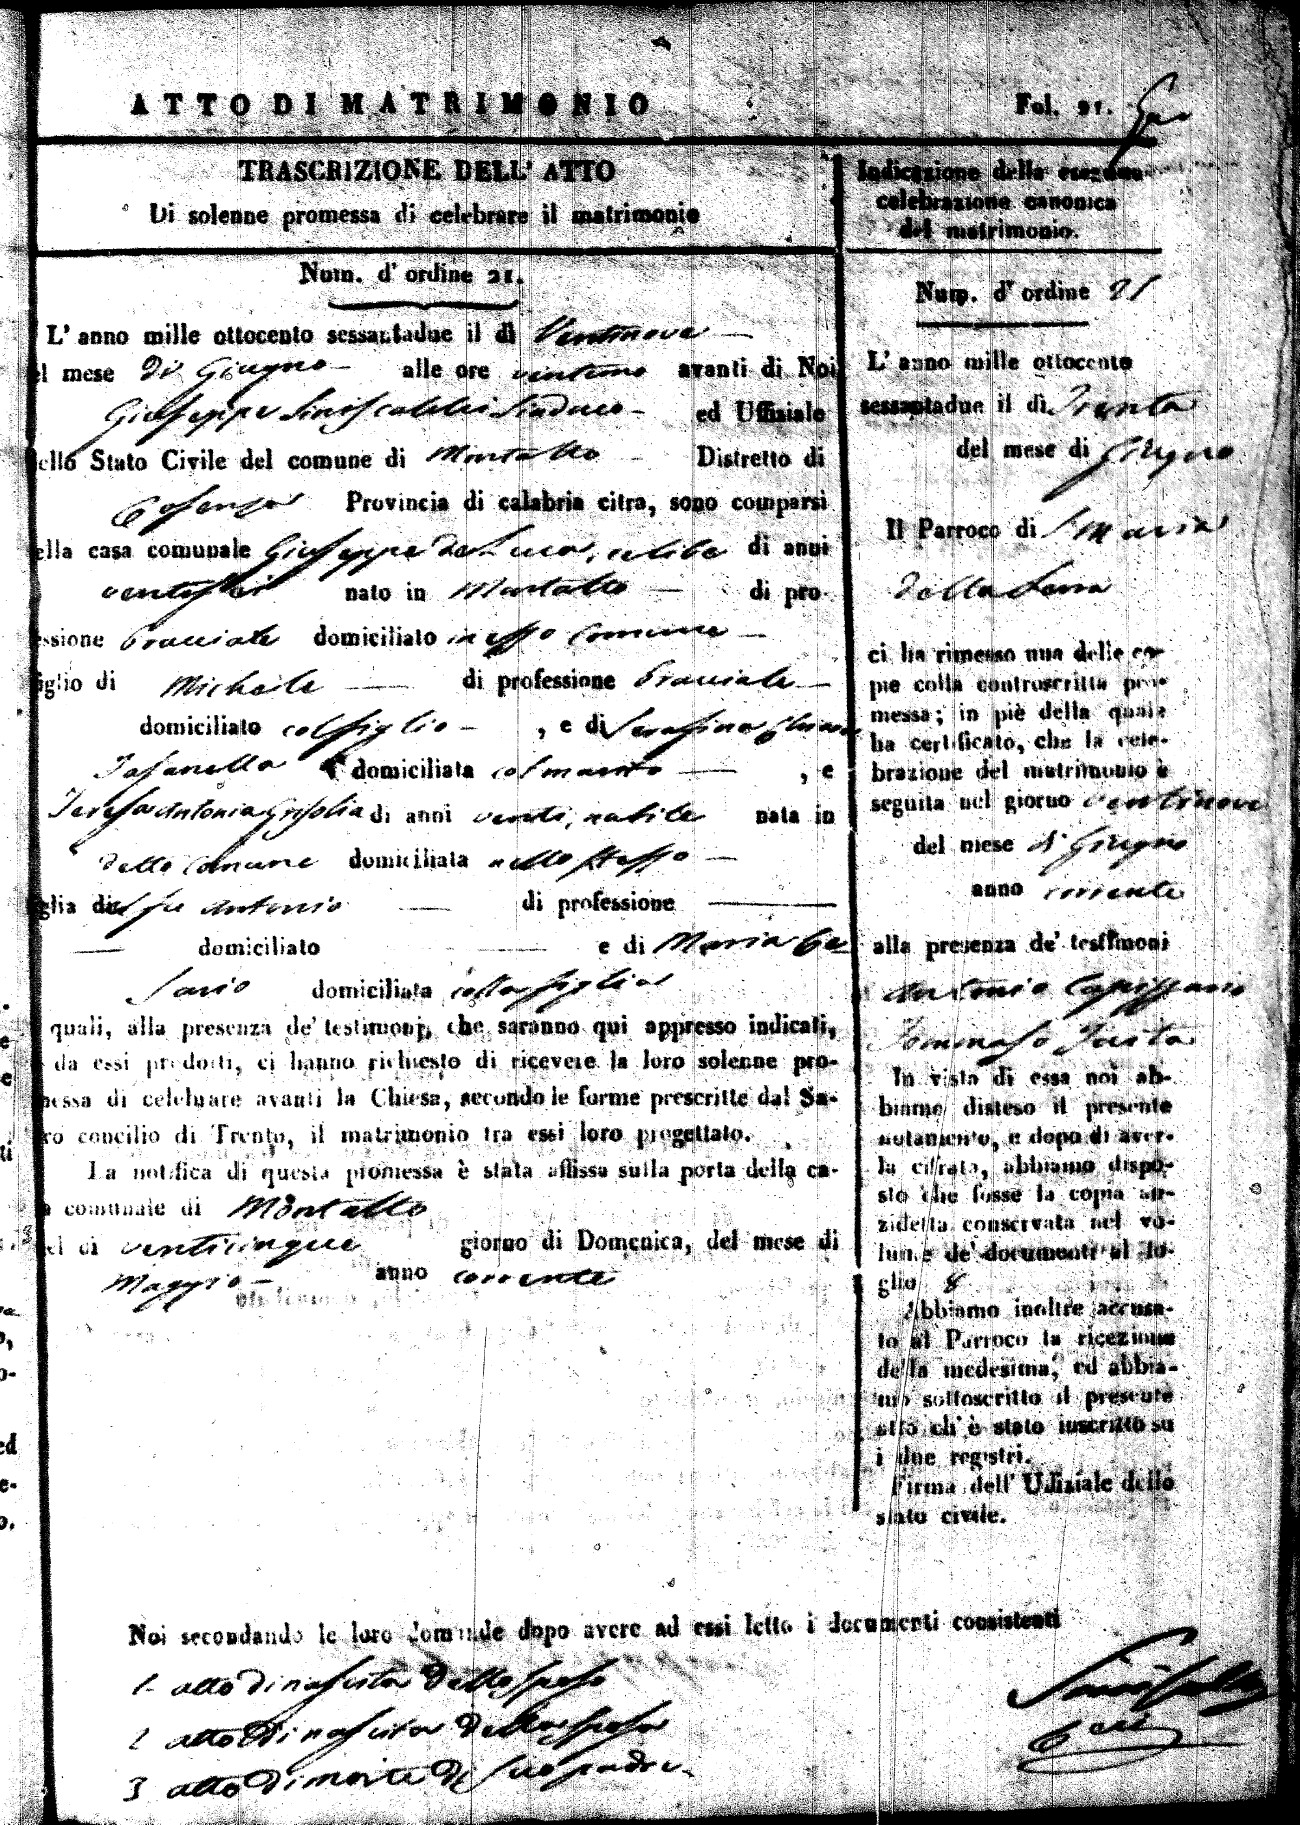 ATTO DI MATRIMONIO
Fol. 21.
TRASCRIZIONE DELL' ATTO
Di solenne promessa di celebrare il matrimonio
Num. d' ordine 21.
L' anno mille ottocento sessantadue il dì Ventinove
el mese di Giugno alle ore ventuno avanti di Noi
Giuseppe Siniscalchi Sindaco ed Uffiziale
ello Stato Civile del comune di Montalto Distretto di
Cosenza Provincia di calabria citra, sono comparsi
ella casa comunale Giuseppe de Luca, celibe di anni
ventisei nato in Montalto di pro-
essione bracciale domiciliato in esso Comune
iglio di Michele di professione bracciale
domiciliato col figlio , e di Serafina
Fasanella domiciliata col marito , e
Teresa Antonia Grisolia di anni venti, nubile nata in
detto Comune domiciliata nello stesso
glia del fu Antonio di professione
domiciliato e di Maria Ce
sario domiciliata colla figlia
quali, alla presenza de' testimonj, che saranno qui appresso indicati,
da essi prodotti, ci hanno richiesto di ricevere la loro solenne pro-
messa di celebrare avanti la Chiesa, secondo le forme prescritte dal Sa-
ro concilio di Trento, il matrimonio tra essi loro progettato.
La notifica di questa promessa è stata affissa sulla porta della ca-
a comunale di Montalto
el dì venticinque giorno di Domenica, del mese di
Maggio anno corrente
Indicazione della eseguita
celebrazione canonica
del matrimonio.
Num. d' ordine 21
L' anno mille ottocento
sessantadue il dì Trenta
del mese di Giugno
Il Parroco di S. Maria
della Serra
ci ha rimesso una delle co-
pie colla controscritta pro-
messa; in piè della quale
ha certificato, che la cele-
brazione del matrimonio è
seguita nel giorno ventinove
del mese di Giugno
anno corrente
alla presenza de' testimoni
Antonio Capissano
Tommaso Iusta
In vista di essa noi ab-
biamo disteso il presente
notamento, e dopo di aver-
la cifrata, abbiamo dispo-
sto che fosse la copia an-
zidetta conservata nel vo-
lume de' documenti al fo-
glio 8
Abbiamo inoltre accusa-
to al Parroco la ricezione
della medesima, ed abbia-
mo sottoscritto il presente
atto ch' è stato inscritto su
i due registri.
Firma dell' Uffiziale dello
stato civile.
Noi secondando le loro domande dopo avere ad essi letto i documenti consistenti
1 atto di nascita dello sposo
2 atto di nascita della sposa
3 atto di morte di suo padre